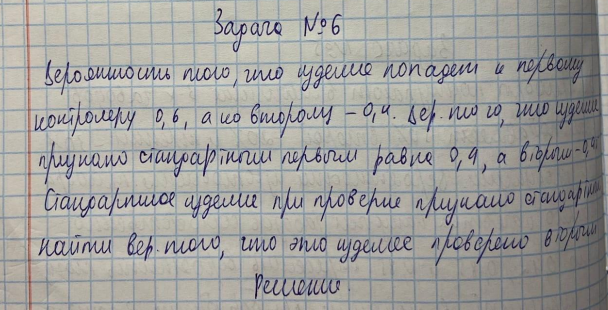 Задача №6
Вероятность того, что изделие попадет к первому
контролеру 0,6, а ко второму – 0,4. Вер. того, что изделие
признано стандартным первым равна 0,9, а вторым – 0,95
Стандартное изделие при проверке признано стандартным
найти вер. того, что это изделие проверено вторым
Решение.